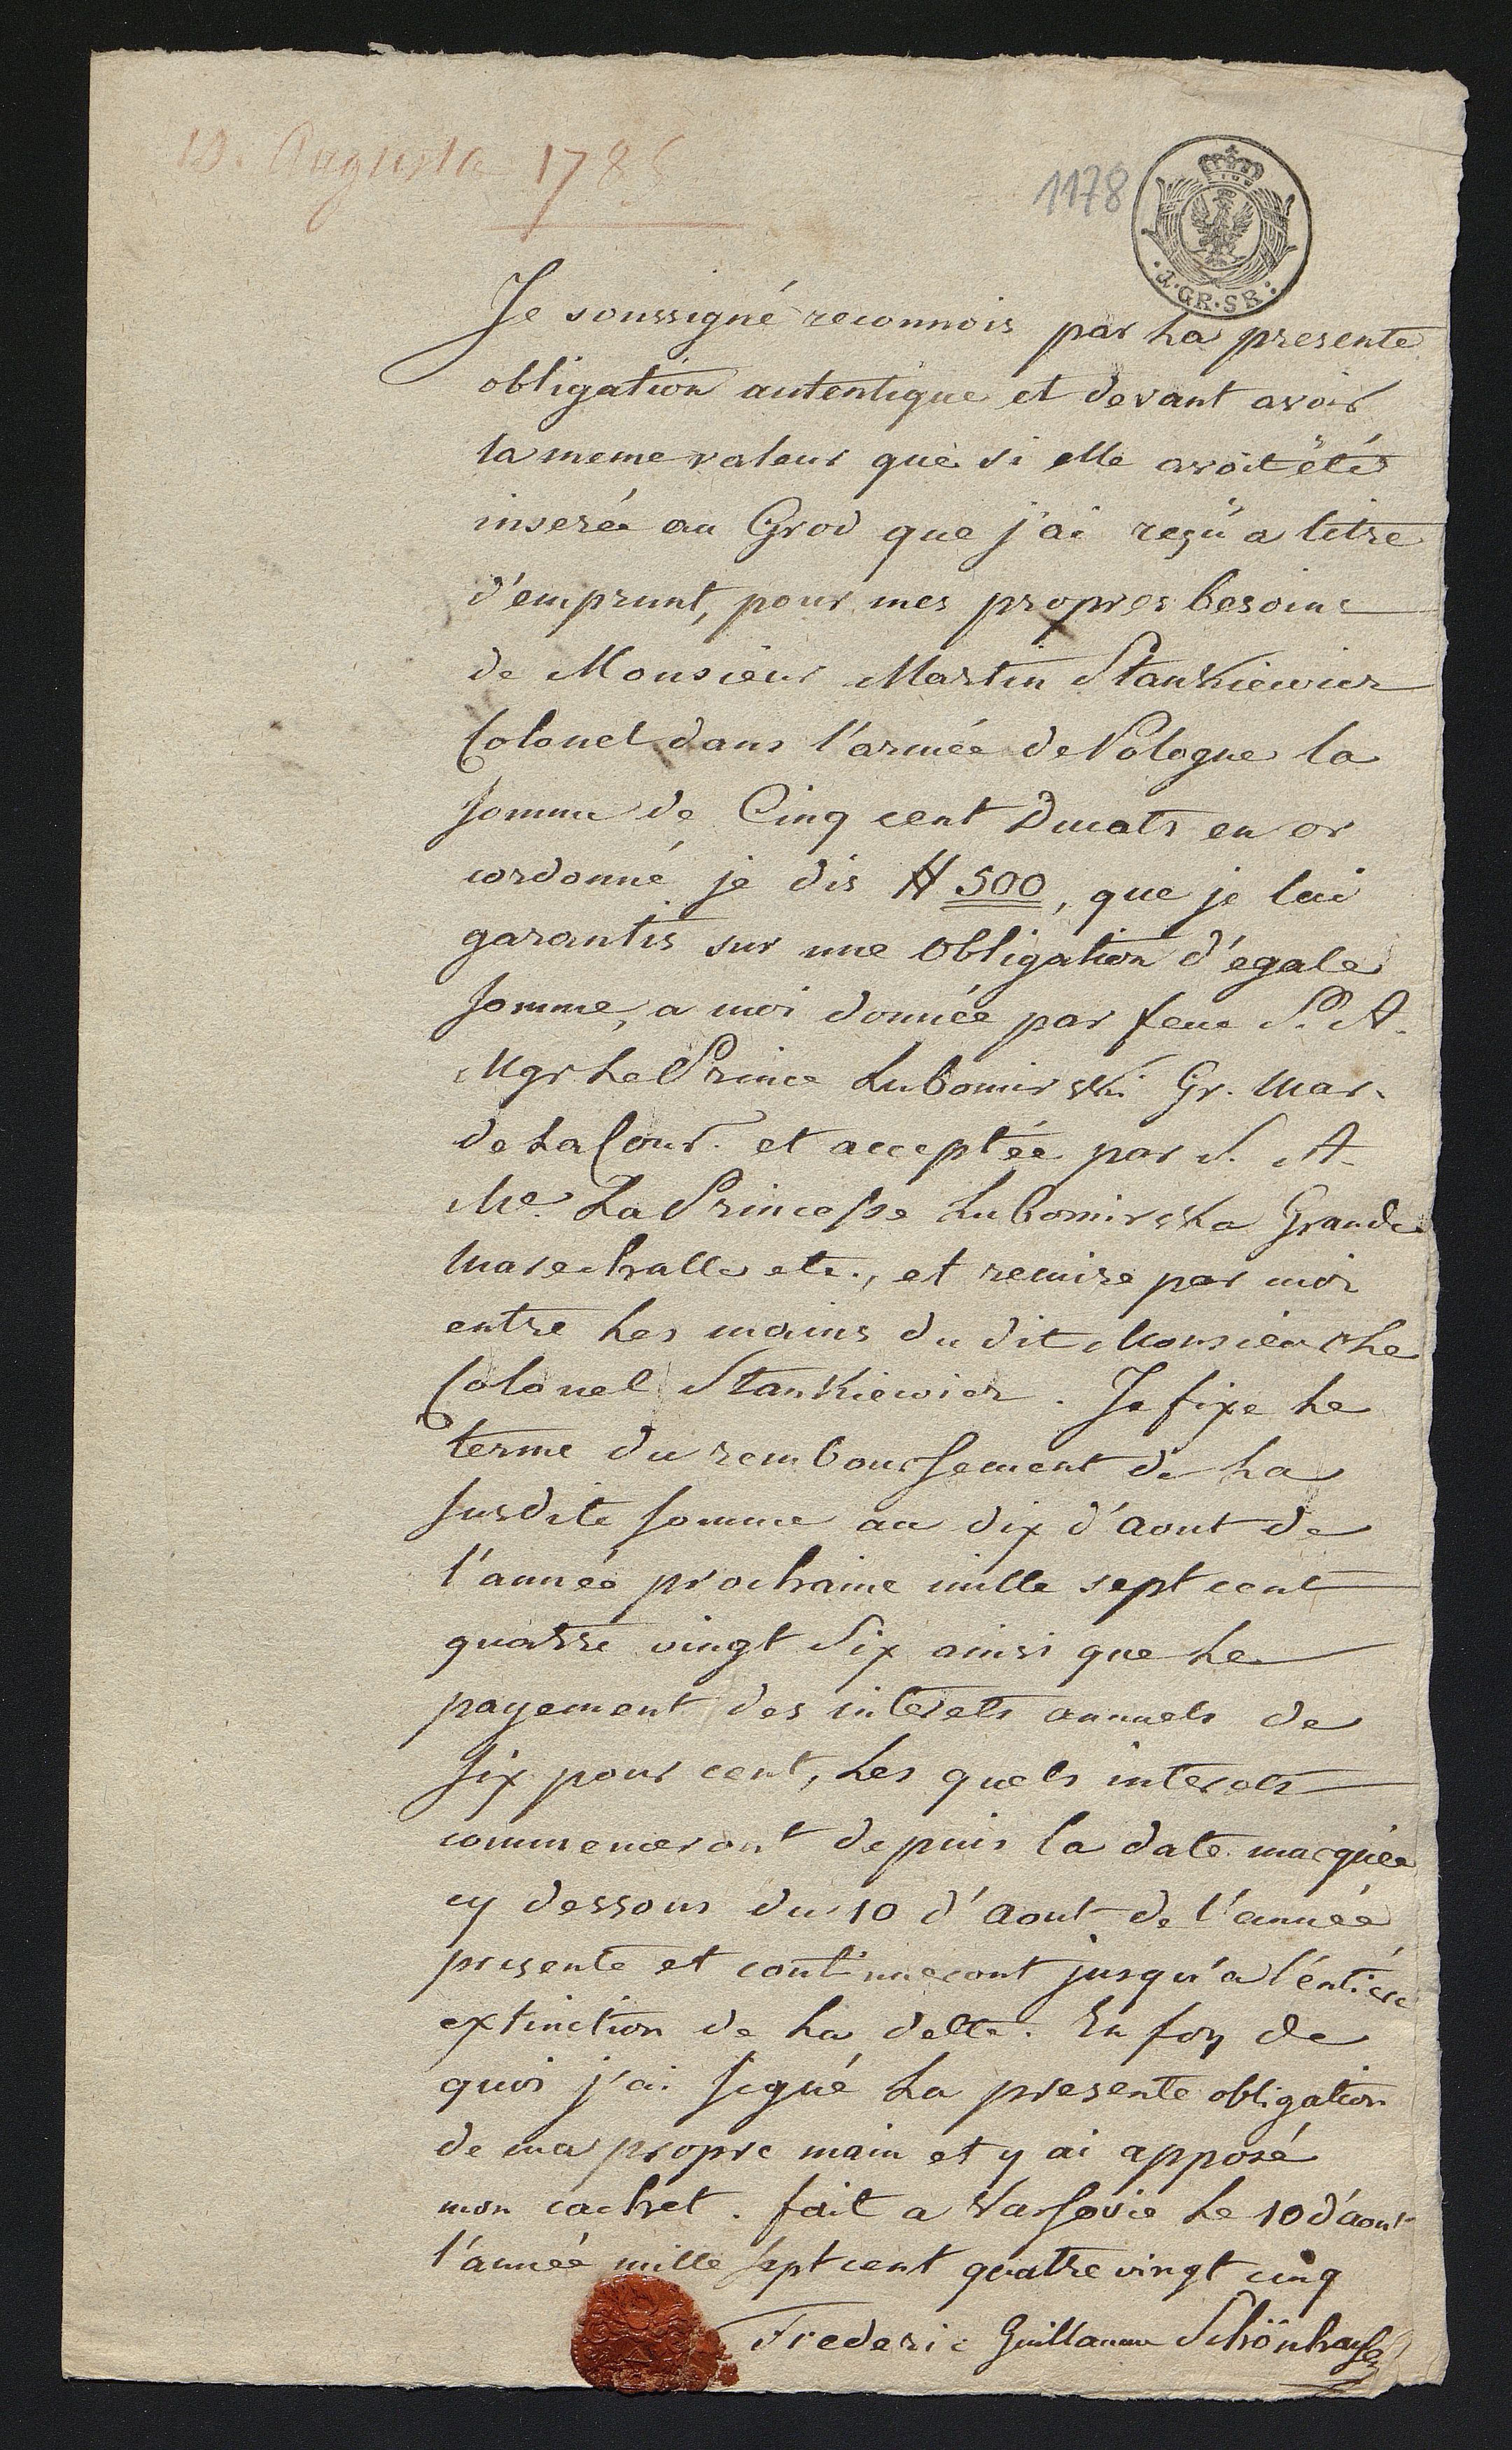 10. Augusta 1785
1178
1·GR·SR:
Je soussigné reconnois par La presente
obligation autentique et devant avoir
la meme valeur que si elle avoit été
inserée au Grod que j'ai reçu a titre
d'emprunt, pour mes propres besoins
de Monsieur Martin Stankiewicz
Colonel dans l'armée de Pologne la
somme de Cinq cent Ducats en or
cordonné je dis # 500, que je lui
garantis sur une obligation d'egale
somme, a moi donnée par feue S. A.
Mgr Le Prince Lubomirski Gr. Mar.
de La Cour. et acceptée par S. A.
Me. La Princesse Lubomirska Grande
Marechalle etc., et remise par moi
entre Les mains du dit Monsieur Le
Colonel Stankiewicz. Je fixe Le
terme du remboursement de La
susdite somme au dix d'aout de
l'année prochaine mille sept cent
quatre vingt Six ainsi que Le
payement des interets annuels de
six pour cent, Les quels interets
commenceront depuis la date marquée
cy dessous du 10 d'aout de l'année
presente et continueront jusqu'a l'entiere
extinction de La dette. En foy de
quoi j'ai signé La presente obligation
de ma propre main et y ai apposé
mon cachet. fait a Varsovie Le 10 d'aout
l'année mille sept cent quatre vingt cinq
Frederic Guillaume Schönhayse